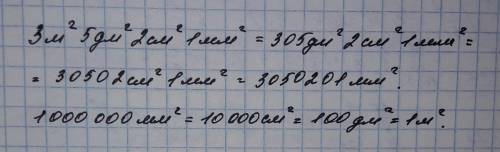 3м² 5дм² 2см² 1мм² = 305дм² 2см² 1мм² =
= 30502см² 1мм² = 3050201мм².
1000 000мм² = 10 000см² = 100дм² = 1м².